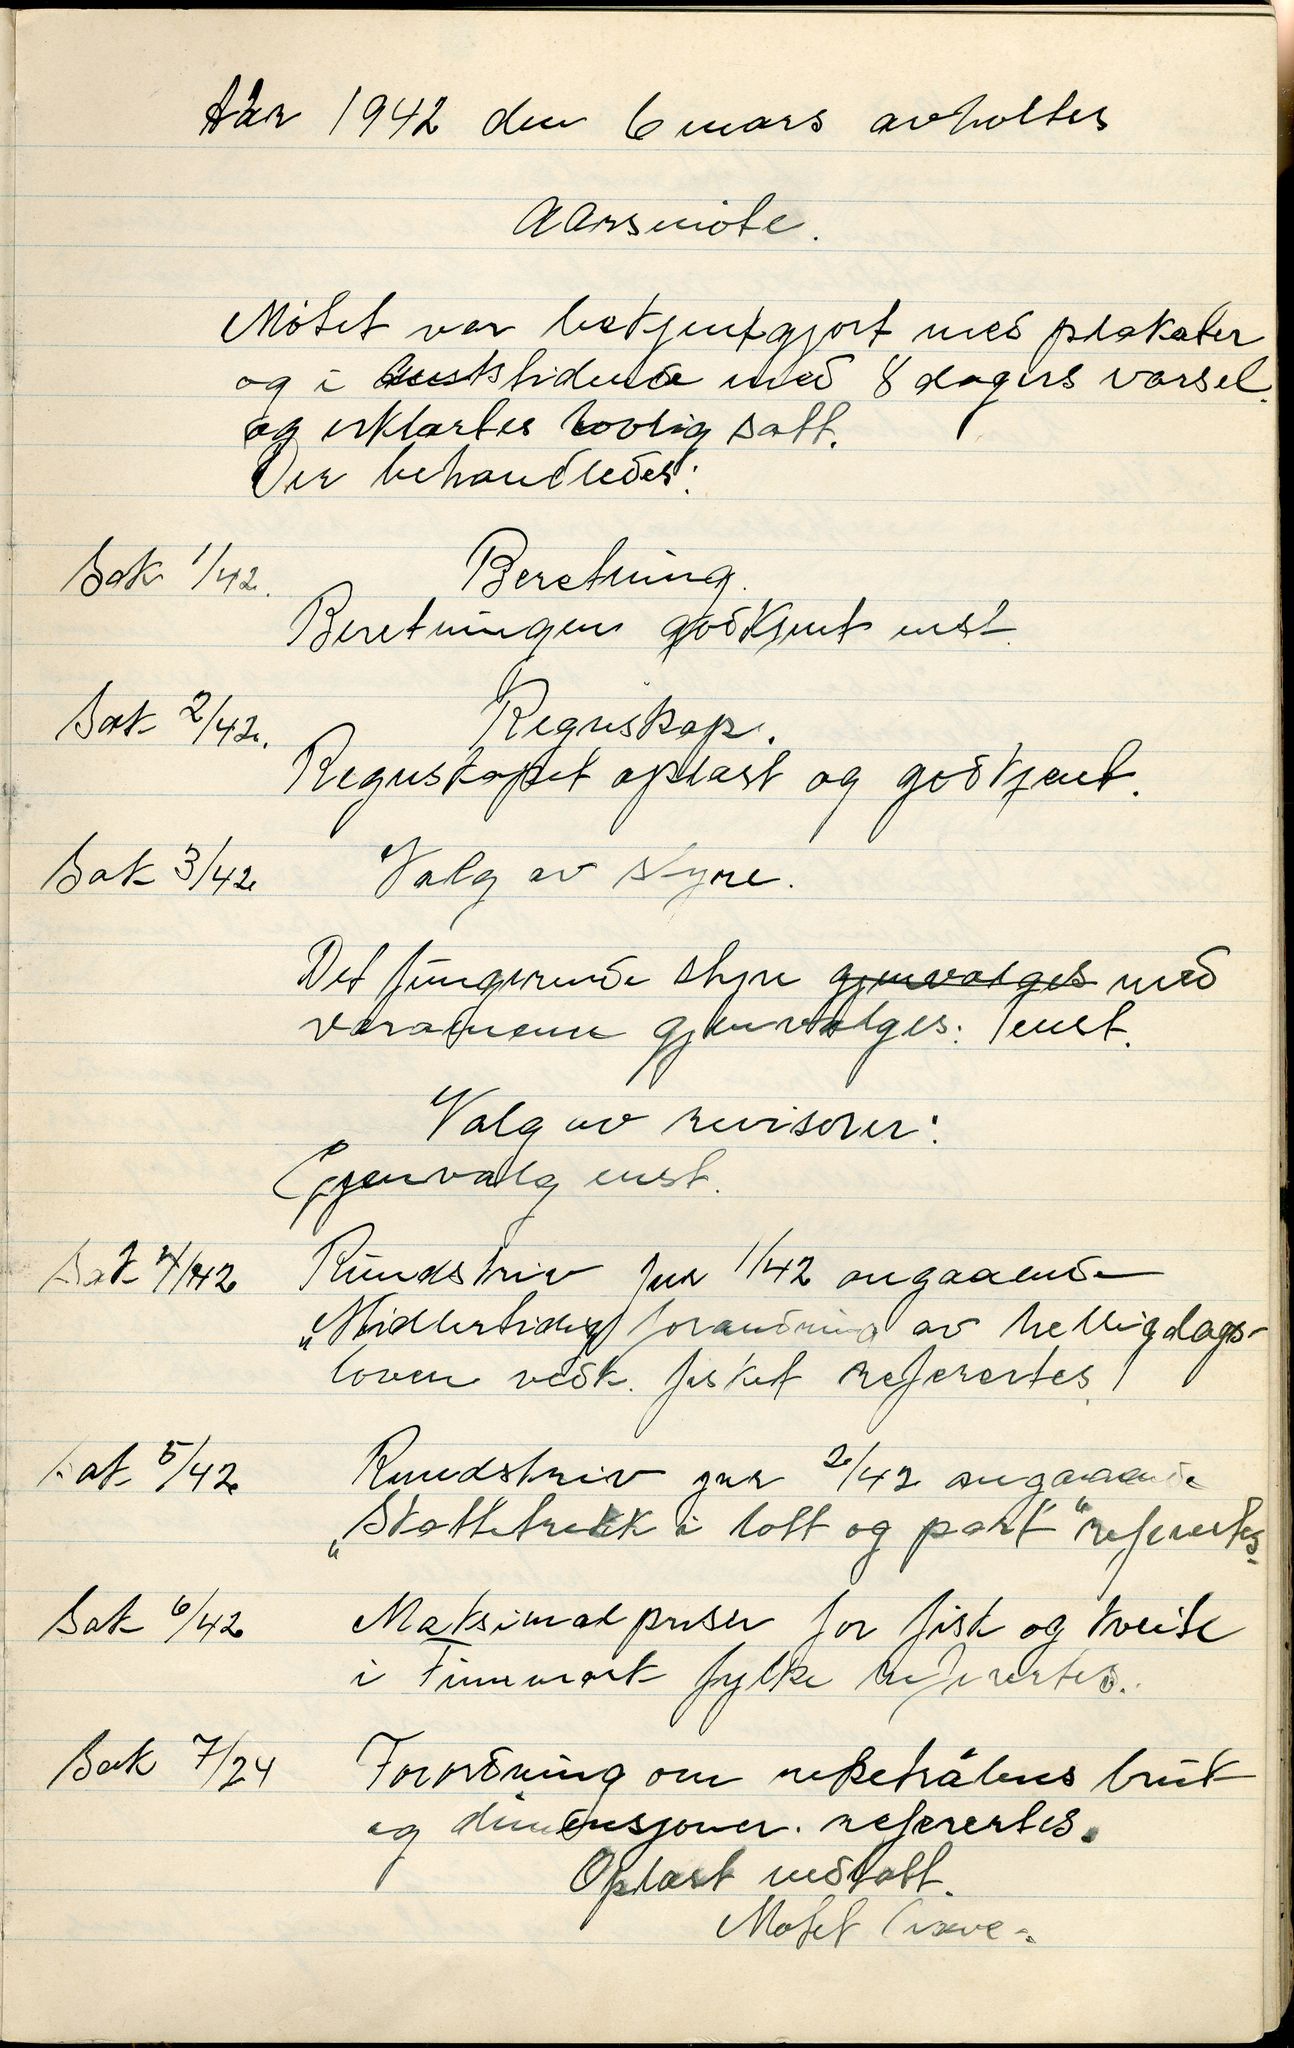 Aar 1942 den 6 mars avholtes
Aarsmöte.
Møtet var bekjentgjort med plakater
og i med 8 dagers varsel.
og erklærtes lovlig satt.
Der behandledes:
Sak 1/42. Beretning.
Beretningen godkjent enst.
Sak 2/42. Regnskap.
Regnskapet oplæst og godkjent.
Sak 3/42 Valg av styre.
Det fungerende styre gjenvalges med
varamenn gjenvalges: enst.
Valg av revisorer:
Gjenvalg enst.
Sak 4/42 Rundskriv 1/42 angaaende
„Midlertidig forandring av helligdags-
loven vedk. fisket refereertes.
Sak 5/42 Rundskriv 2/42 angaaende
„Skattetrekk i lott og part" refereertes.
Sak 6/42 Maksimalpriser for fisk og kveite
i Finnmark fylke refereertes.
Sak 7/24 Forordning om reketrålens bruk
og dimensjoner. referertes.
Oplæst vedtatt.
Møtet hævet.